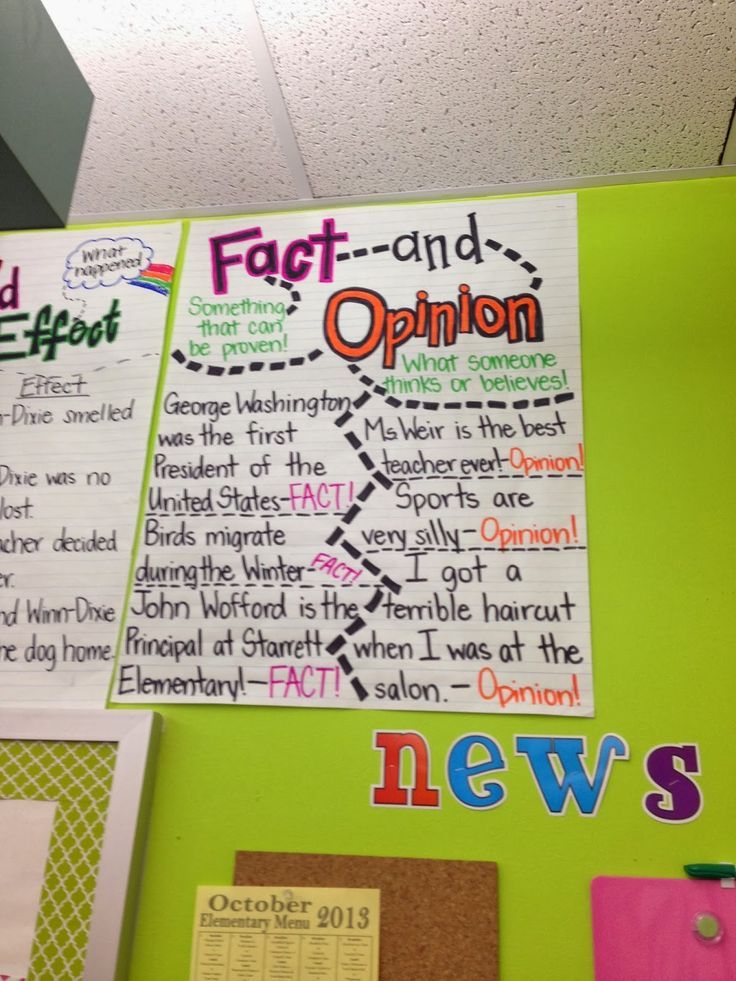 What
happened
d
Effect
Effect
-Dixie smelled
Dixie was no
lost.
cher decided
er.
nd Winn-Dixie
he dog home.
Fact and
Opinion
Something
that can
be proven!
What someone
thinks or believes!
George Washington
was the first
President of the
United States-FACT!
Birds migrate
during the Winter-FACT!
John Wofford is the
Principal at Starrett
Elementary!-FACT!
Ms Weir is the best
teacher ever!-Opinion!
Sports are
very silly-Opinion!
I got a
terrible haircut
when I was at the
salon.-Opinion!
news
October
Elementary Menu 2013